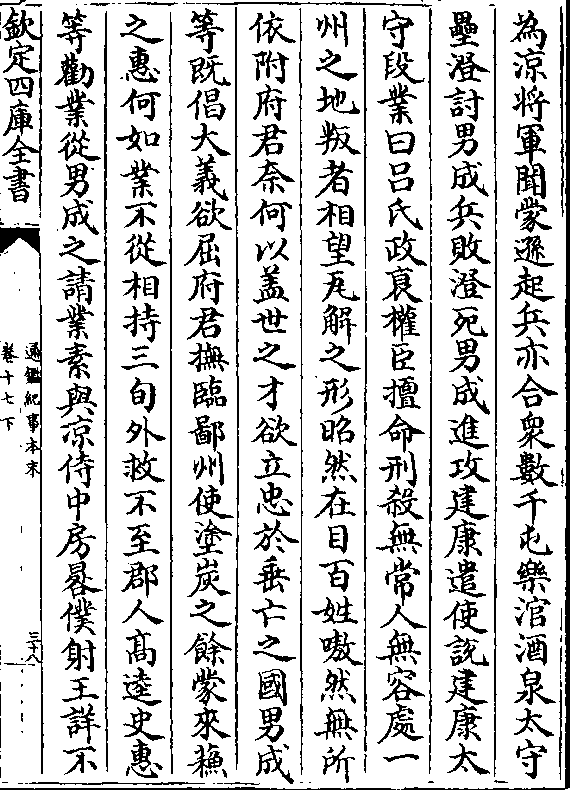 為涼将軍聞蒙遜起兵亦合衆數千屯樂涫酒泉太守
壘澄討男成兵敗澄死男成進攻建康遣使說建康太
守段業曰吕氏政衰權臣擅命刑殺無常人無容處一
州之地叛者相望瓦解之形昭然在目百姓嗷然無所
依附府君奈何以盖世之才欲立忠於垂亡之國男成
等既倡大義欲屈府君撫臨鄙州使塗炭之餘蒙來蘓
之惠何如業不從相持三旬外救不至郡人髙逵史惠
等勸業從男成之請業素與凉侍中房晷僕射王詳不
欽定四庫全書
通鑑紀事本末
卷十七下
三十八